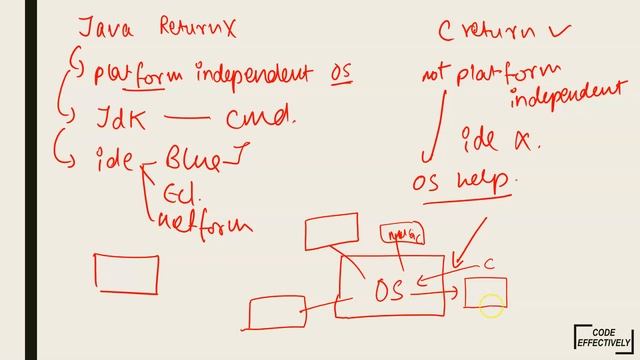 Java Return X
platform independent OS
JdK — cmd.
ide - BlueJ
Ecl.
netform
C return ✓
not platform
independent
ide X.
OS help.
C
OS
CODE
EFFECTIVELY